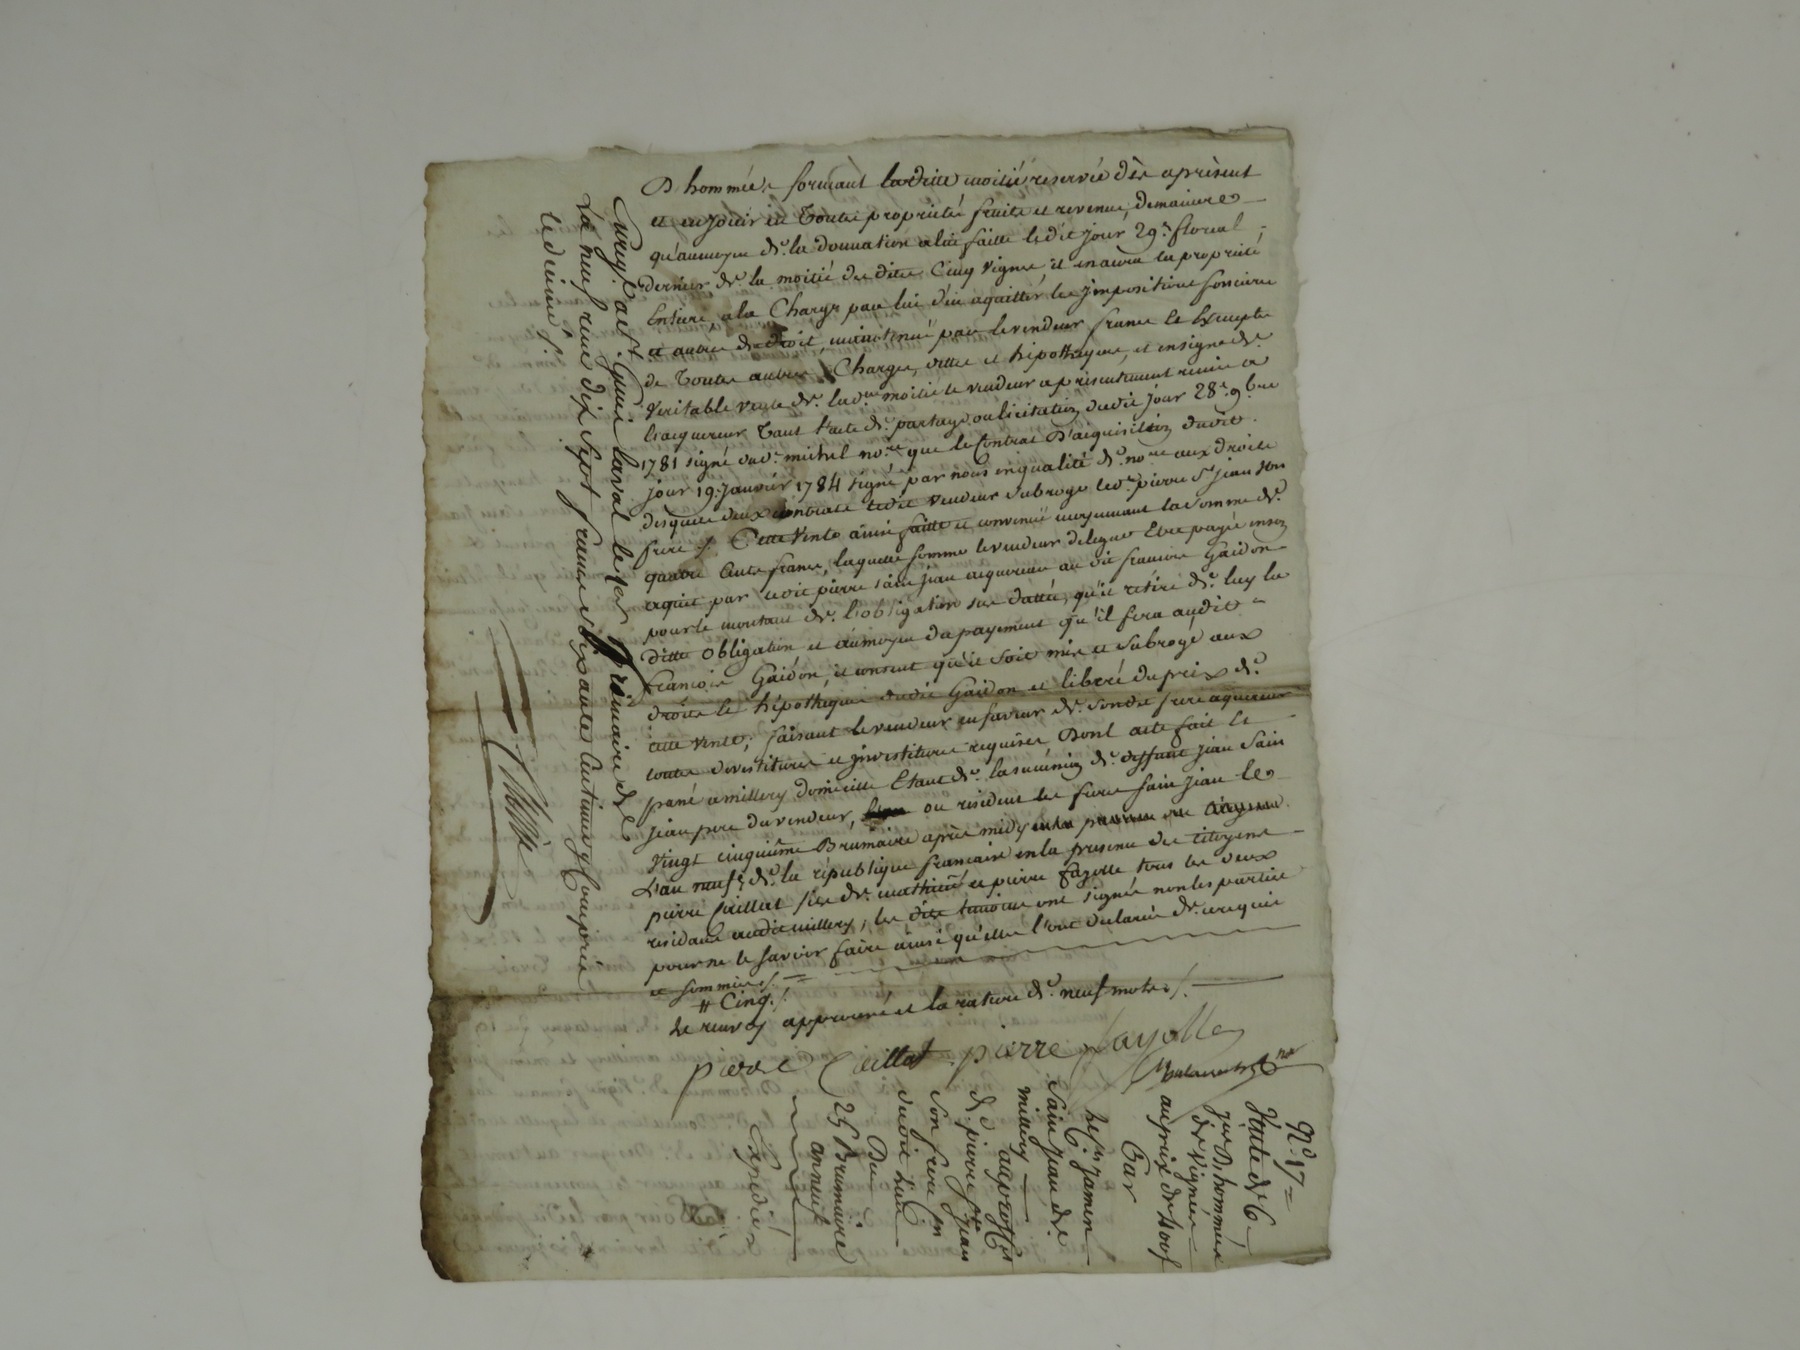 D hommées formant laditte moitié reservée dès aprèsent
et en jouir en Toute propriété fruits et revenus, demaniere
qu'aumoyen de la donnation a lui faitte ledit jour 29e floreal
dernier de la moitié des dittes Cinq vignes, il en aura la propriété
Entiere, a la Charge par lui d'en aquitter les jmpositions foncieres
et autres de droit, maintenué par le vendeur franc et Exempte
de Toutes autres Charges, dettes et hipotheques, et en signe de
Veritable vente de lad. moitié le vendeur a présentement remis a
l'acquereur Tant l'acte de partage ou licitation dudit jour 28e 9bre
1781 signé dud. michel nore que le Contrat D'aiquisition dudit
jour 19. Janvier 1784 signé par nous en qualité de nore aux droits
desquels deux contrats ledit vendeur subroge led. pierre St jean son
frere /. Cette Vente ainsi faitte et convenué moyennant la somme de
quatre Cents francs, laquelle somme le vendeur delegue Etre payée en son
aquit par ledit pierre sain jean acquereur au dit francois Gaidon
pour le montant de l'obligation sus dattée, qu'il retire de luy la
ditte obligation et aumoyen du payement qu'il fera audit
francois Gaidon, il consent qu'il soit mis et subrogé aux
droits et hipotheques dudit Gaidon et libéré du prix de
cette vente; faisant le vendeur en faveur de sondit frere aquereur
toutes devestitures et jnvestitures requises Dont acte fait et
passé a millery domicille Etant de la succession de deffunt jean Sain
jean pere du vendeur, ou resident les freres sain jean le
Vingt cinquième Brumaire après midy
L'an neuf de la république francaise en la presence des citoyens
pierre Caillat fils de mathieu et pierre fayolle tous les deux
residants audit millery, les dits temoins ont signés non les parties
pour ne le savoir faire ainsi qu'elles l'ont declarées de ce enquis
et sommées /.
# Cinq. /.
Le renvoy approuvé et la rature de neuf mots /.
pierre Caillat pierre fayolle
Enregt. a St Genis laval le
L'an neuf reçu dix sept francs soixante Centimes Compris
le decime /.
No. 17
Vente de 6
D hommées
de vignes
au prix de 400f
Par
Sain jean de
millery
au profit
de pierre St jean
son frere
dudit lieu
Du
25 Brumaire
an neuf
Expedié